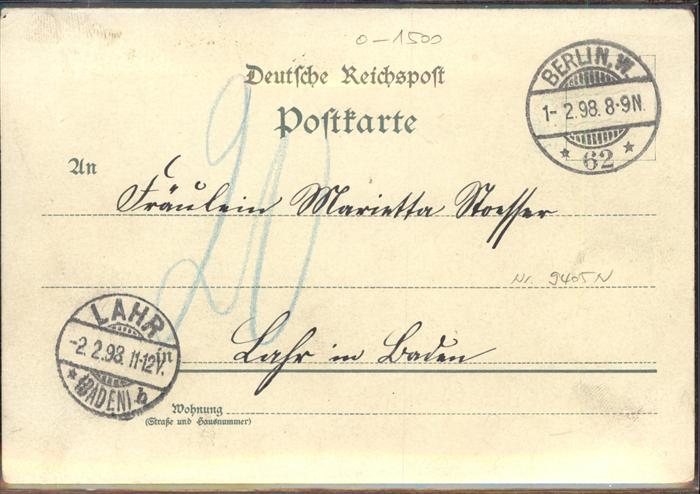 0-1500
Deutsche Reichspost
Postkarte
BERLIN. W.
1- 2.98. 8-9N.
* 62 *
An
20
Fräulein Marietta Stoesser
Nr. 9405N
LAHR
-2. 2.98. 11-12V.
* (BADEN) b
in
Lahr in Baden
Wohnung
(Straße und Hausnummer)